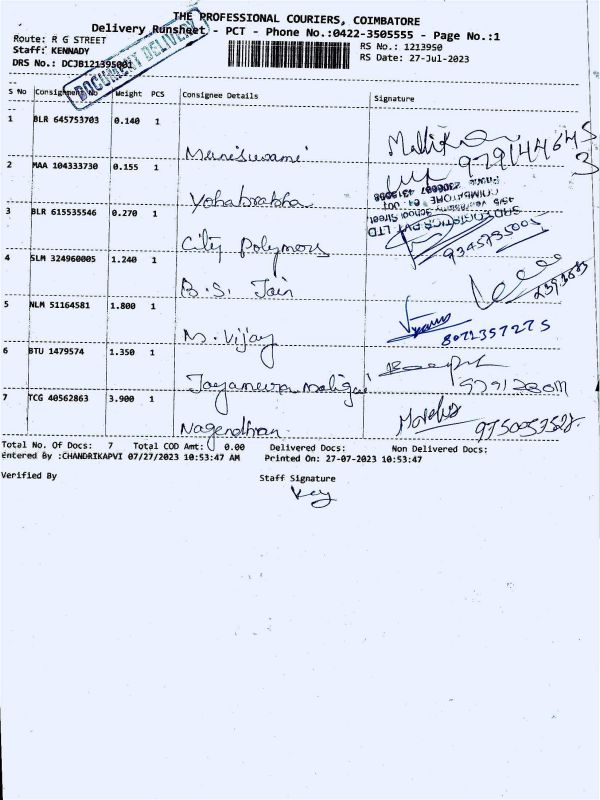 THE PROFESSIONAL COURIERS, COIMBATORE
Delivery Runsheet - PCT - Phone No.:0422-3505555 - Page No.:1
Route: R G STREET
RS No.: 1213950
Staff: KENNADY
RS Date: 27-Jul-2023
DRS No.: DCJB121395001
DOCUMENT DELIVERY
S No Consignment No Weight PCS Consignee Details Signature
1 BLR 645753703 0.140 1
Muniswami
2 MAA 104333730 0.155 1
Yohabrabha
3 BLR 615535546 0.270 1
City Polymers
9345735001
4 SLM 324960005 1.240 1
B.S. Jain
5 NLM 51164581 1.800 1
M. Vijay
8072357275
6 BTU 1479574 1.350 1
7 TCG 40562863 3.900 1
Nagendhran
Total No. Of Docs: 7 Total COD Amt: 0.00 Delivered Docs: Non Delivered Docs:
Entered By :CHANDRIKAPVI 07/27/2023 10:53:47 AM Printed On: 27-07-2023 10:53:47
Verified By Staff Signature